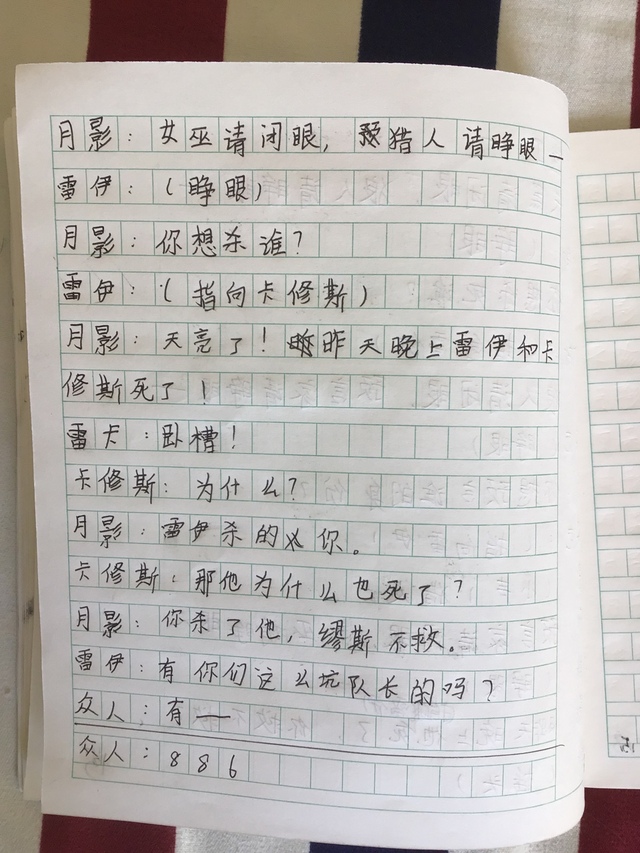 月影：女巫请闭眼，猎人请睁眼—
雷伊：（睁眼）
月影：你想杀谁？
雷伊：（指向卡修斯）
月影：天亮了！昨天晚上雷伊和卡
修斯死了！
雷卡：卧槽！
卡修斯：为什么？
月影：雷伊杀的你。
卡修斯：那他为什么也死了？
月影：你杀了他，缪斯不救。
雷伊：有你们这么坑队长的吗？
众人：有—
众人：886